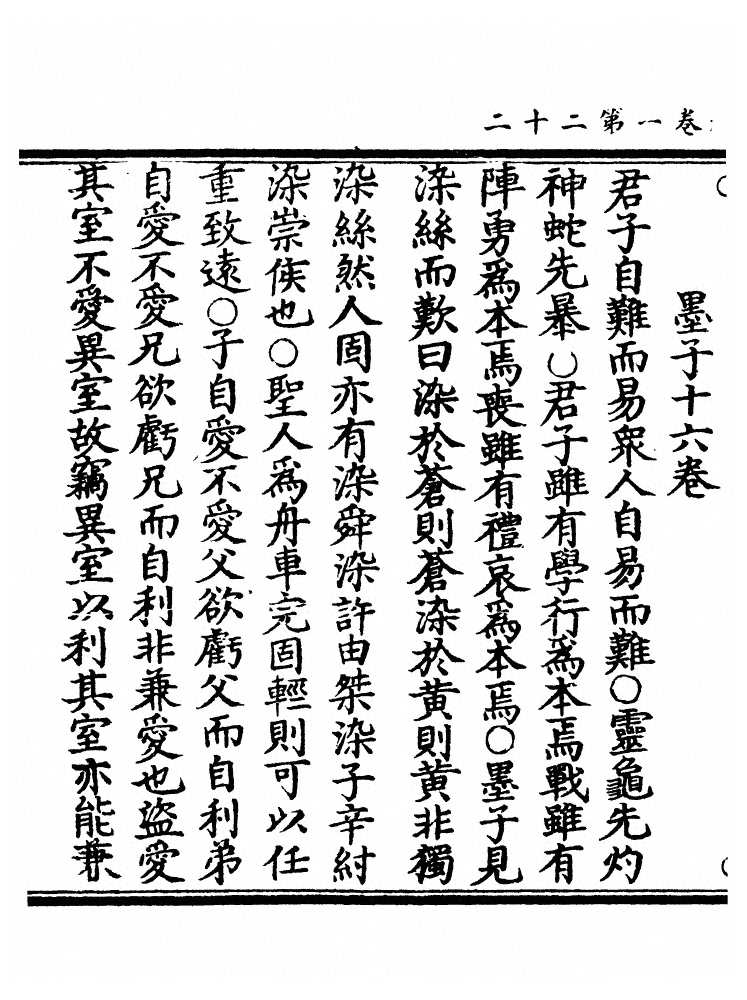 卷一第二十二
墨子十六卷
君子自難而易衆人自易而難○靈龜先灼
神蛇先暴○君子雖有學行爲本焉戰雖有
陣勇爲本焉喪雖有禮哀爲本焉○墨子見
染絲而歎曰染於蒼則蒼染於黃則黃非獨
染絲然人固亦有染舜染許由桀染子辛紂
染崇侯也○聖人爲舟車完固輕則可以任
重致遠○子自愛不愛父欲虧父而自利弟
自愛不愛兄欲虧兄而自利非兼愛也盜愛
其室不愛異室故竊異室以利其室亦能兼